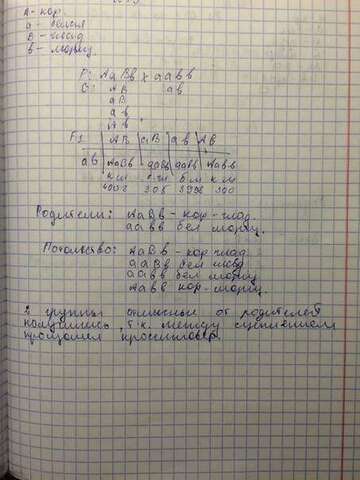 А - кор.
а - белая
В - глад
в - морщ
Р: АаВв х аавв
G: АВ ав
аВ
ав
Ав
F1 | АВ | аВ | ав | Ав
ав | АаВв | ааВв | аавв | Аавв
к гл б гл б м к м
4002 305 3998 300
Родители: АаВв - кор-глад.
аавв бел морщ.
Потомство: АаВв - кор глад
ааВв бел глад
аавв бел морщ
Аавв кор-морщ.
2 группы отличные от родителей
получились, т.к. между сцеплением
произошел кроссинговер.